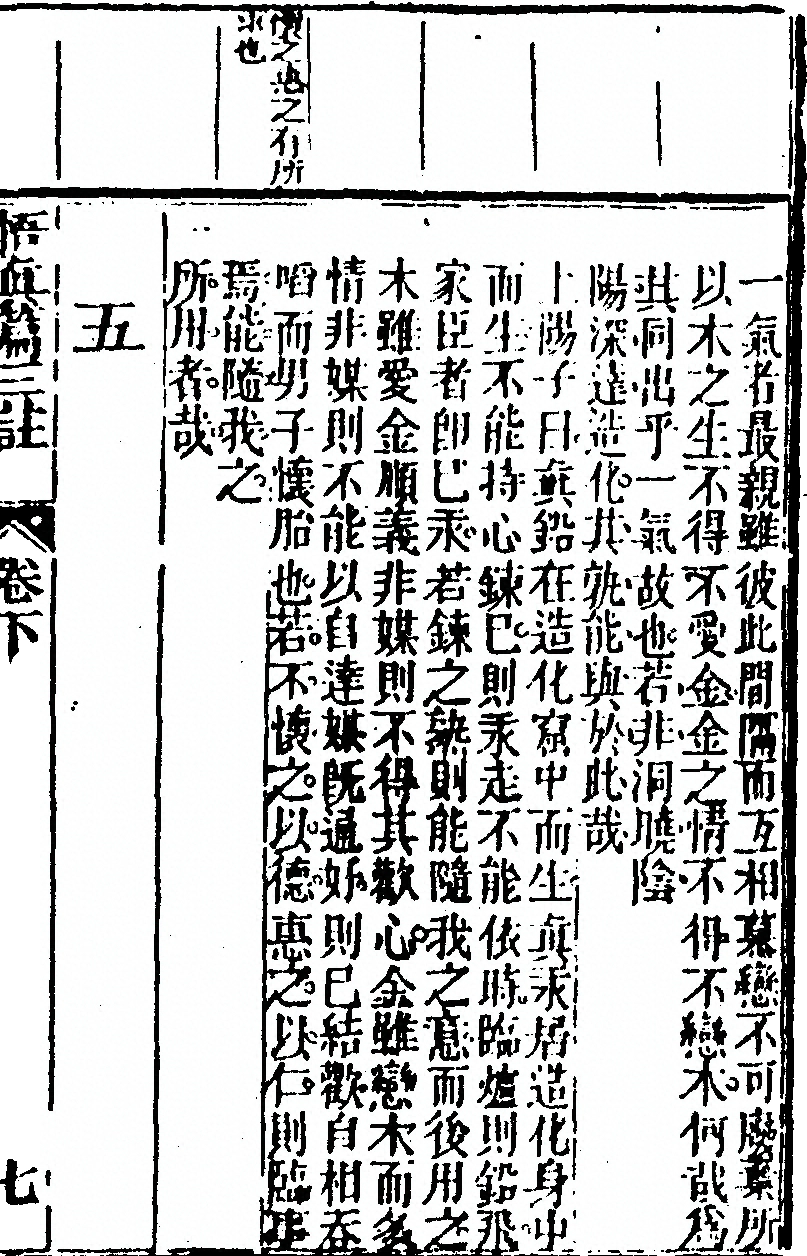 懷之惠之有所
求也
一氣者最親雖彼此間隔而互相慕戀不可廢棄所
以木之生不得不愛金金之情不得不戀木何哉爲
其同出乎一氣故也若非洞曉陰
陽深達造化其孰能與於此哉
上陽子曰眞鉛在造化窟中而生眞汞居造化身中
而生不能持心鍊已則汞走不能依時臨爐則鉛飛
家臣者卽已汞若鍊之熟則能隨我之意而後用之
木雖愛金順義非媒則不得其歡心金雖戀木而多
情非媒則不能以自達媒旣通好則已結歡自相吞
啗而男子懷胎也若不懷之以德惠之以仁則臨事
焉能隨我之
所用者哉
五
悟眞篇三註
卷下
七